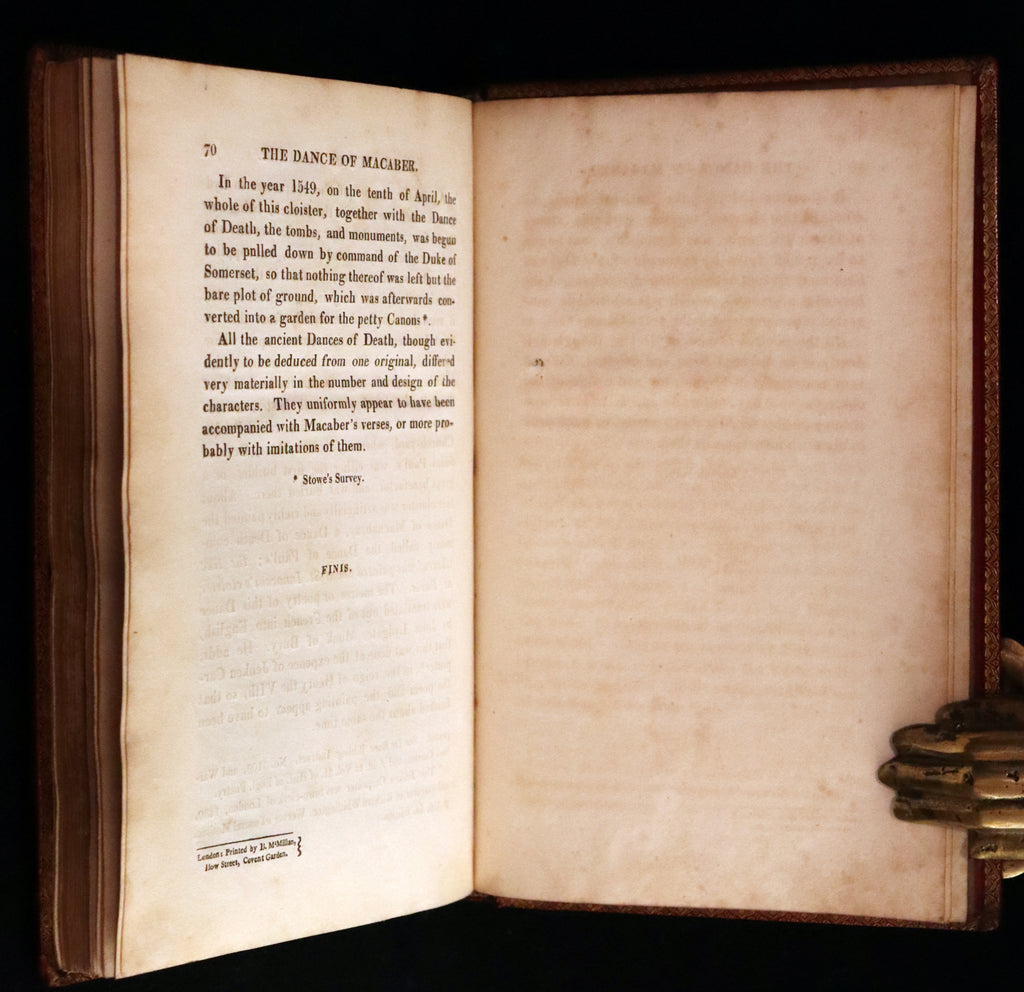 70 THE DANCE OF MACABER.
In the year 1549, on the tenth of April, the
whole of this cloister, together with the Dance
of Death, the tombs, and monuments, was begun
to be pnlled down by command of the Duke of
Somerset, so that nothing thereof was left but the
bare plot of ground, which was afterwards con-
verted into a garden for the petty Canons*.
All the ancient Dances of Death, though evi-
dently to be deduced from one original, differed
very materially in the number and design of the
characters. They uniformly appear to have been
accompanied with Macaber's verses, or more pro-
bably with imitations of them.
* Stowe's Survey.
FINIS.
London: Printed by B. McMillan,
Bow Street, Covent Garden. }